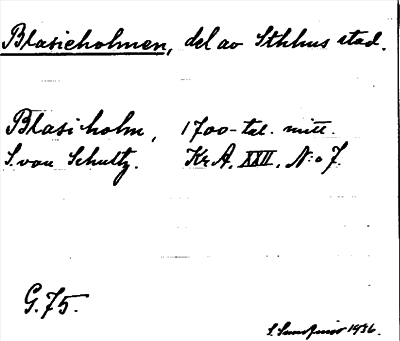 Blasieholmen, del av Sthlms stad.
Blasiholm, 1700-tal. mitt.
S. von Schultz. Kr.A. XXII. N:o 7.
G. 75.
1936.